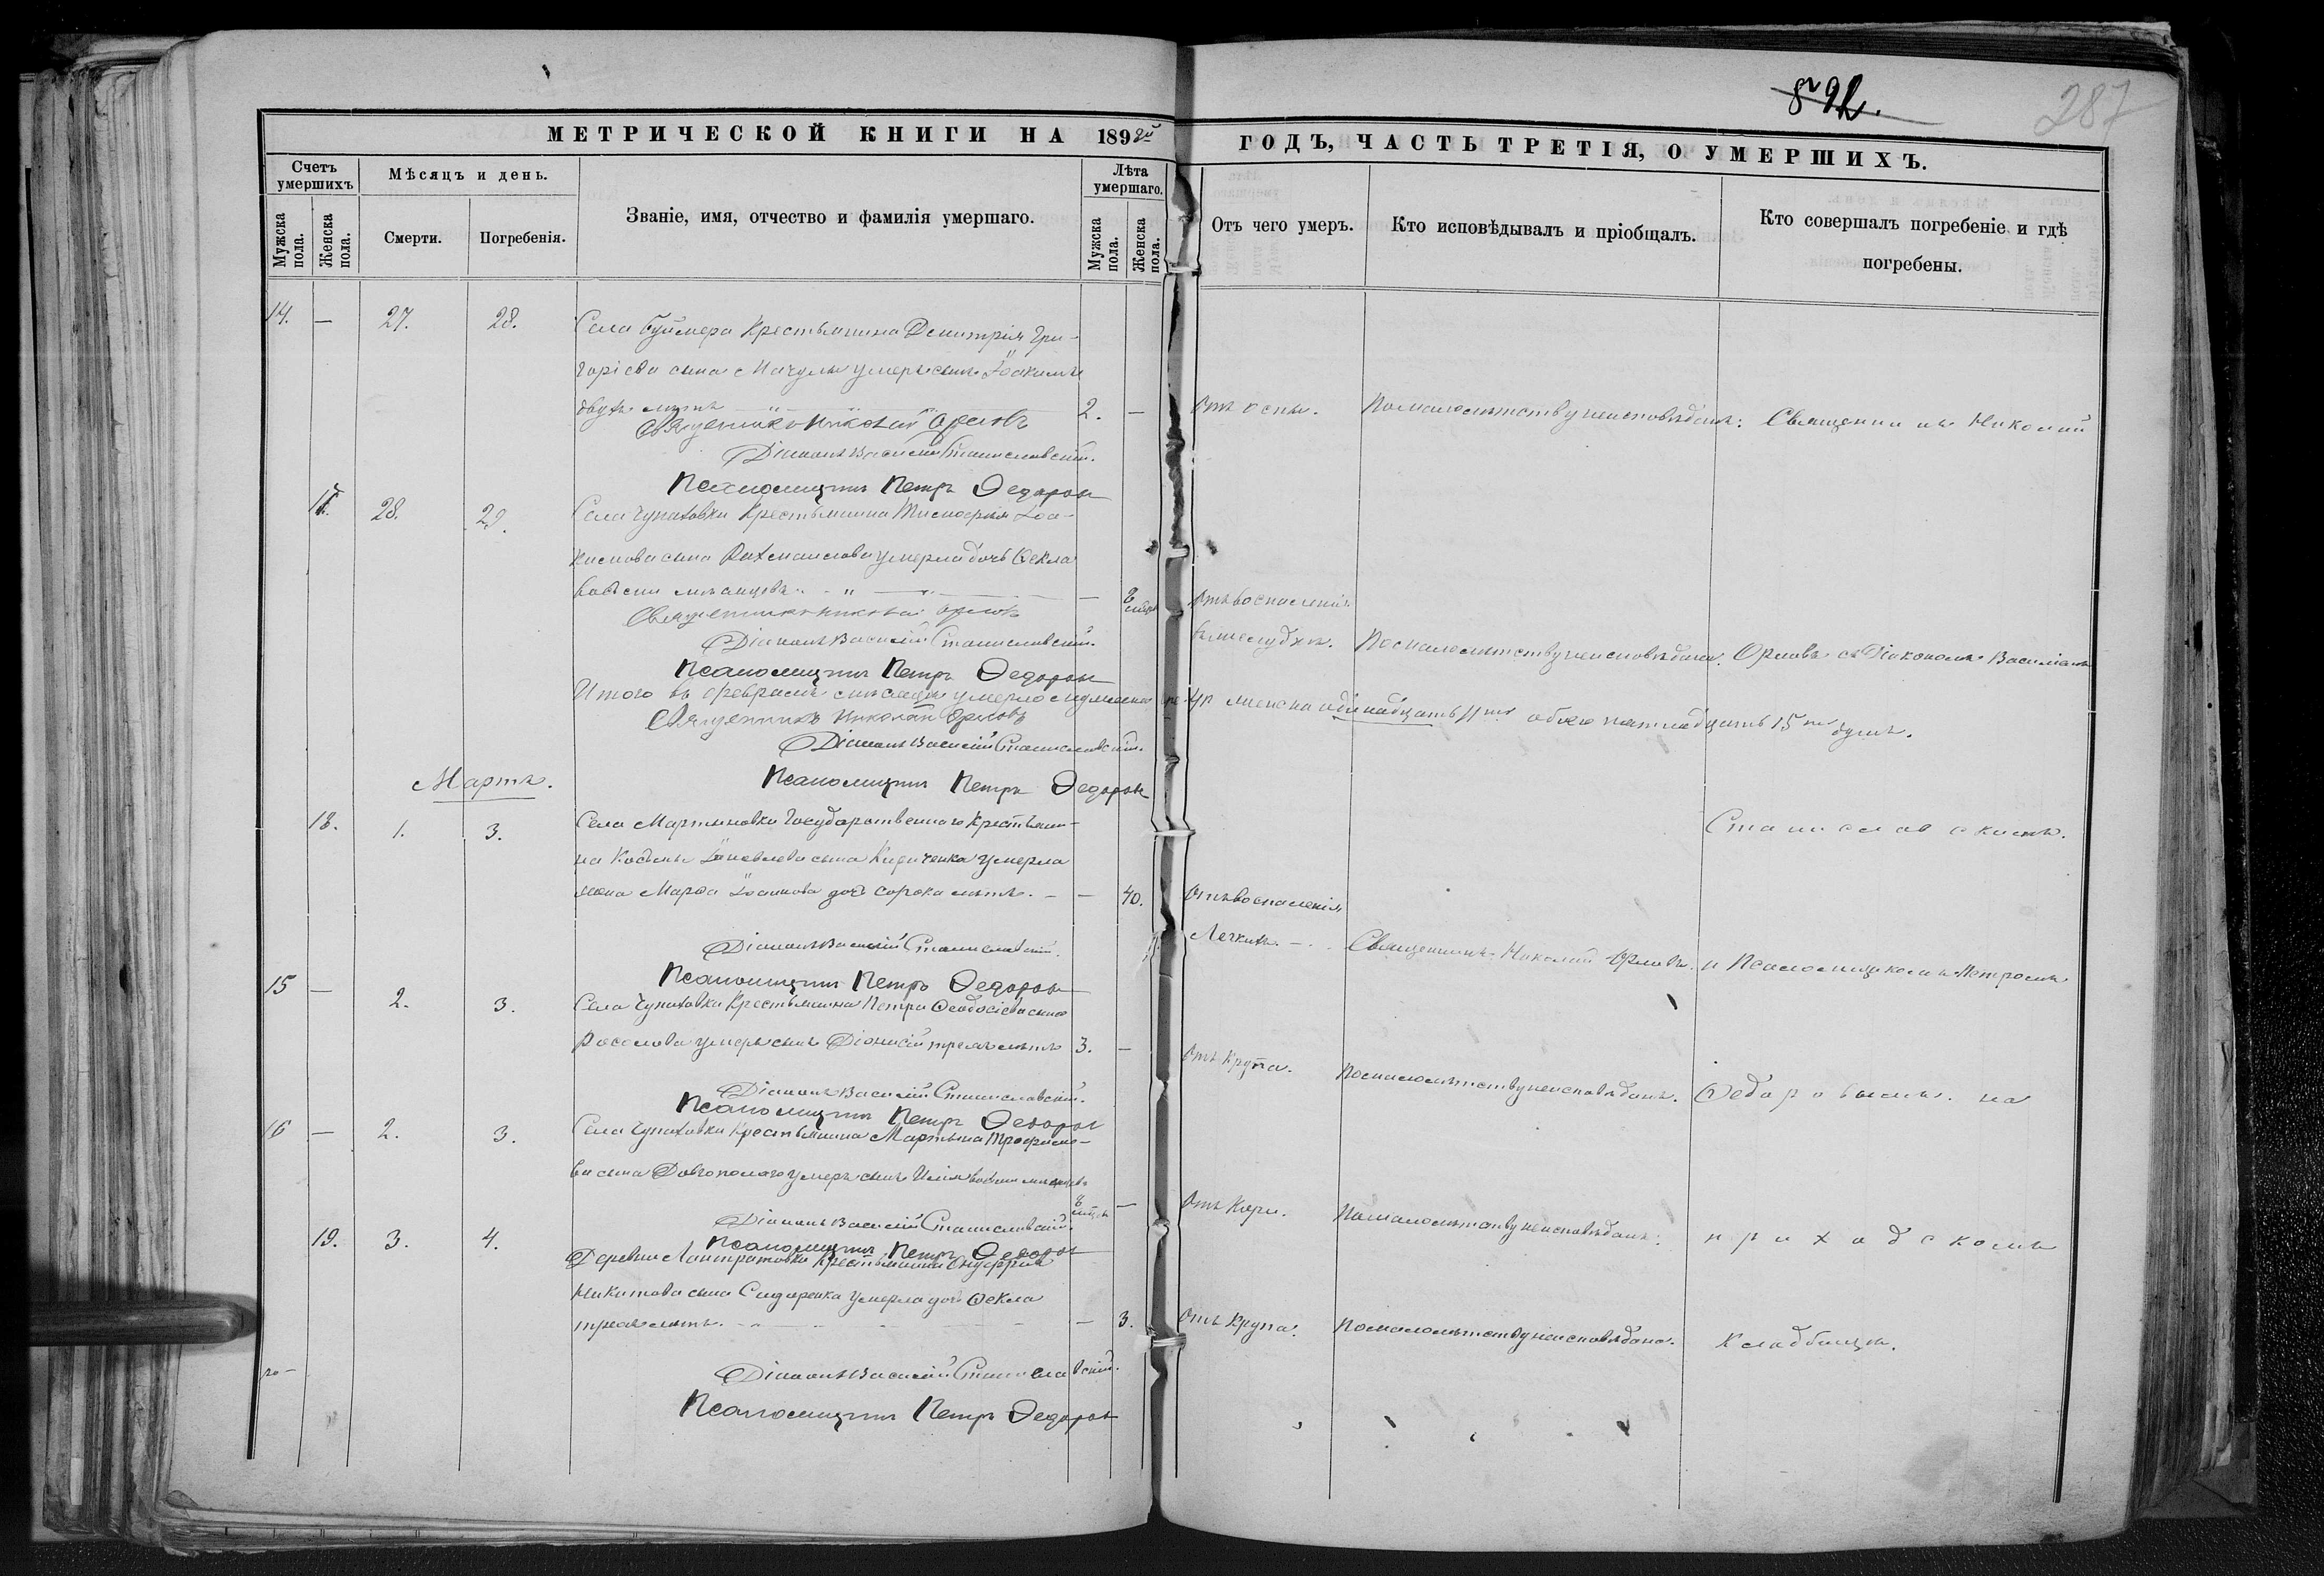 287
МЕТРИЧЕСКОЙ КНИГИ НА 1892й
ГОДЪ, ЧАСТЬ ТРЕТІЯ, О УМЕРШИХЪ.
Счетъ умершихъ
Мѣсяцъ и день.
Званіе, имя, отчество и фамилія умершаго.
Лѣта умершаго.
Мужска пола.
Женска пола.
Смерти.
Погребенія.
Мужска пола.
Женска пола.
Отъ чего умеръ.
Кто исповѣдывалъ и пріобщалъ.
Кто совершалъ погребеніе и гдѣ
погребены.
14. — 27. 28.
Села Буймера Крестьянина Димитрія Гри-
горіева сына Мачулы умеръ сынъ Іоакимъ
двухъ лѣтъ 2. — Отъ оспы. По малолѣтству неисповѣданъ. Священникъ Николай
Священникъ Николай Орловъ
Діаконъ Василій Станиславскій.
Псаломщикъ Петръ Федоров
17. 28. 29.
Села Чупаховки Крестьянина Тимофея Іоа-
кимова сына умерла дочь Ѳекла
восьми мѣсяцевъ — 8 мѣсяц Отъ воспаленія
Священникъ Николай Орловъ
въ желудкѣ. По малолѣтству неисповѣдана. Орловъ съ Діакономъ Василіемъ
Діаконъ Василій Станиславскій.
Псаломщикъ Петръ Федоров
Итого въ Февралѣ мѣсяцѣ умерло мужеска 4, женска одинадцать 11ть обоего пятнадцать 15ть душъ.
Священникъ Николай Орловъ
Діаконъ Василій Станиславскій.
Псаломщикъ Петръ Федоров
Мартъ.
18. 1. 3.
Села Мартыновки Государственнаго Крестьяни-
на Козьмы сына Кириченка умерла
жена Марѳа Іоаннова дочь сорока лѣтъ. — — 40. Отъ воспаленія
Станиславскимъ.
Легкихъ. — Священникъ Николай Орловъ. и Псаломщикомъ Петромъ
Діаконъ Василій Станиславскій.
Псаломщикъ Петръ Федоров
15 — 2. 3.
Села Чупаховки Крестьянина Петра Ѳеодосіева сына
Росолова умеръ сынъ Діонисій трехъ лѣтъ 3. — Отъ Крупа. По малолѣтству неисповѣданъ. Ѳедоровымъ. на
Діаконъ Василій Станиславскій.
Псаломщикъ Петръ Федоров
16 — 2. 3.
Села Чупаховки Крестьянина Мартына Трофимо-
ва сына Довгополаго умеръ сынъ Илія восьми мѣсяцевъ
8 мѣсяц — Отъ Кори. По малолѣтству неисповѣданъ. приходскомъ
Діаконъ Василій Станиславскій.
Псаломщикъ Петръ Федоров
19. 3. 4.
Деревни Крестьянина Онуфрія
Никитова сына Сидоренка умерла дочь Ѳекла
трехъ лѣтъ. — 3. Отъ Крупа. По малолѣтству неисповѣдана. Кладбищѣ.
Діаконъ Василій Станиславскій.
Псаломщикъ Петръ Федоров